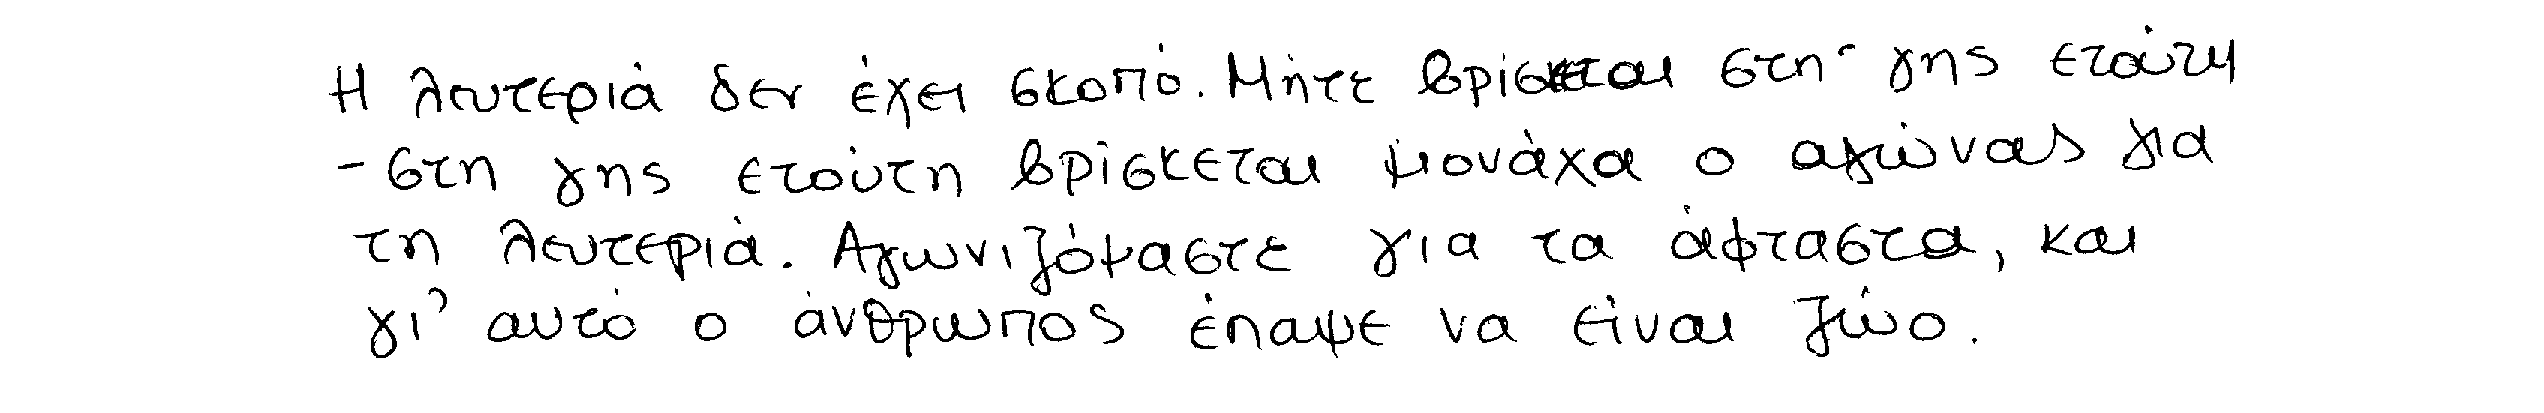 Η λευτεριά δεν έχει σκοπό. Μήτε βρίσκεται στη γης ετούτη
- στη γης ετούτη βρίσκεται μονάχα ο αγώνας για
τη λευτεριά. Αγωνιζόμαστε για τα άφταστα, και
γι' αυτό ο άνθρωπος έπαψε να είναι ζώο.